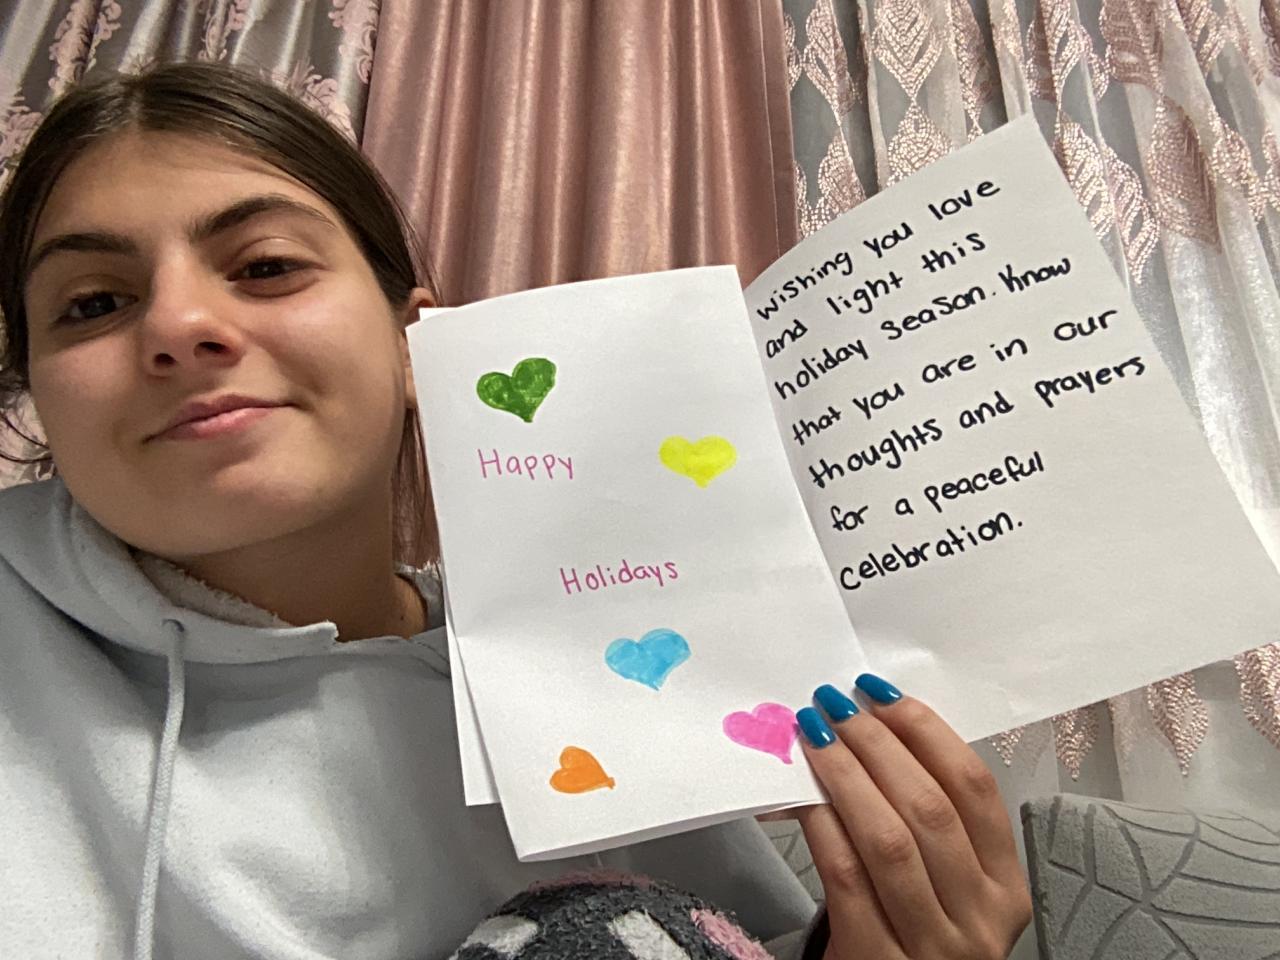 Happy
Holidays
wishing you love
and light this
holiday season. Know
that you are in our
thoughts and prayers
for a peaceful
celebration.